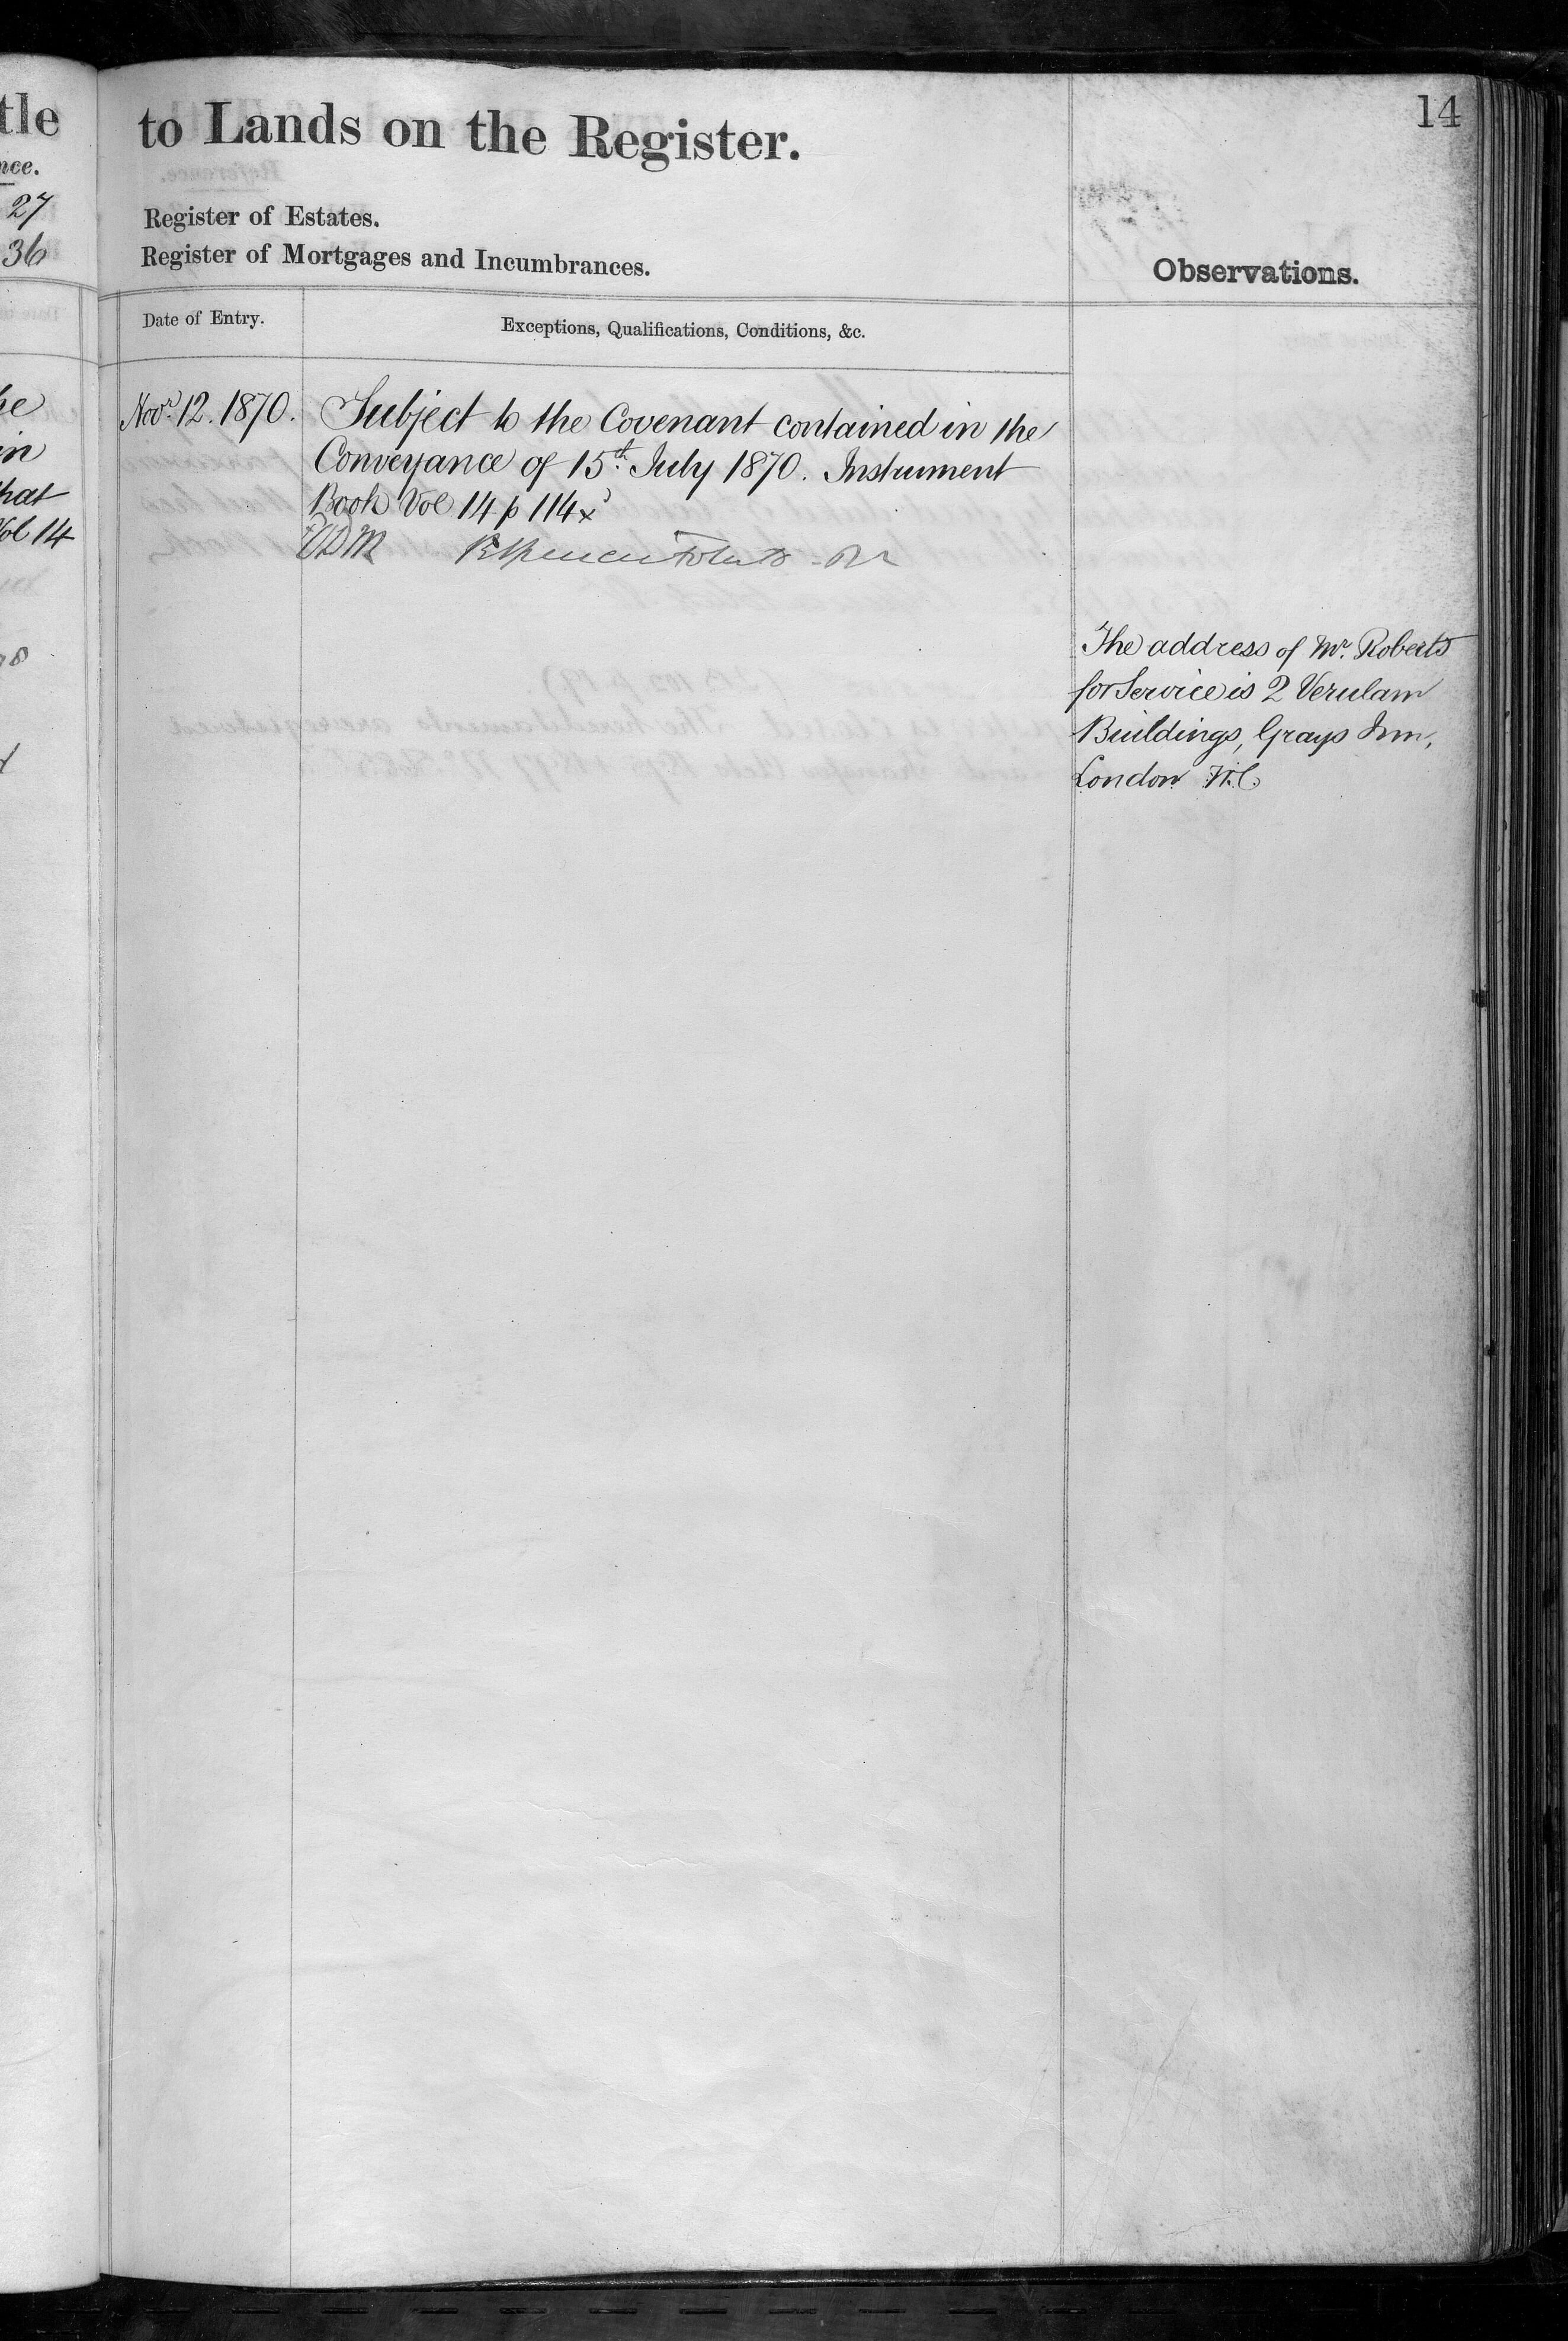 tle
nce.
27
36
he
in
that
Vol 14
14
to Lands on the Register.
Register of Estates.
Register of Mortgages and Incumbrances.
Observations.
Date of Entry.
Exceptions, Qualifications, Conditions, &c.
Novr. 12. 1870.
Subject to the Covenant contained in the
Conveyance of 15th. July 1870. Instrument
Book Vol 14 p 114x
The address of Mr. Roberts
for Service is 2 Verulam
Buildings, Grays Inn,
London W.C.